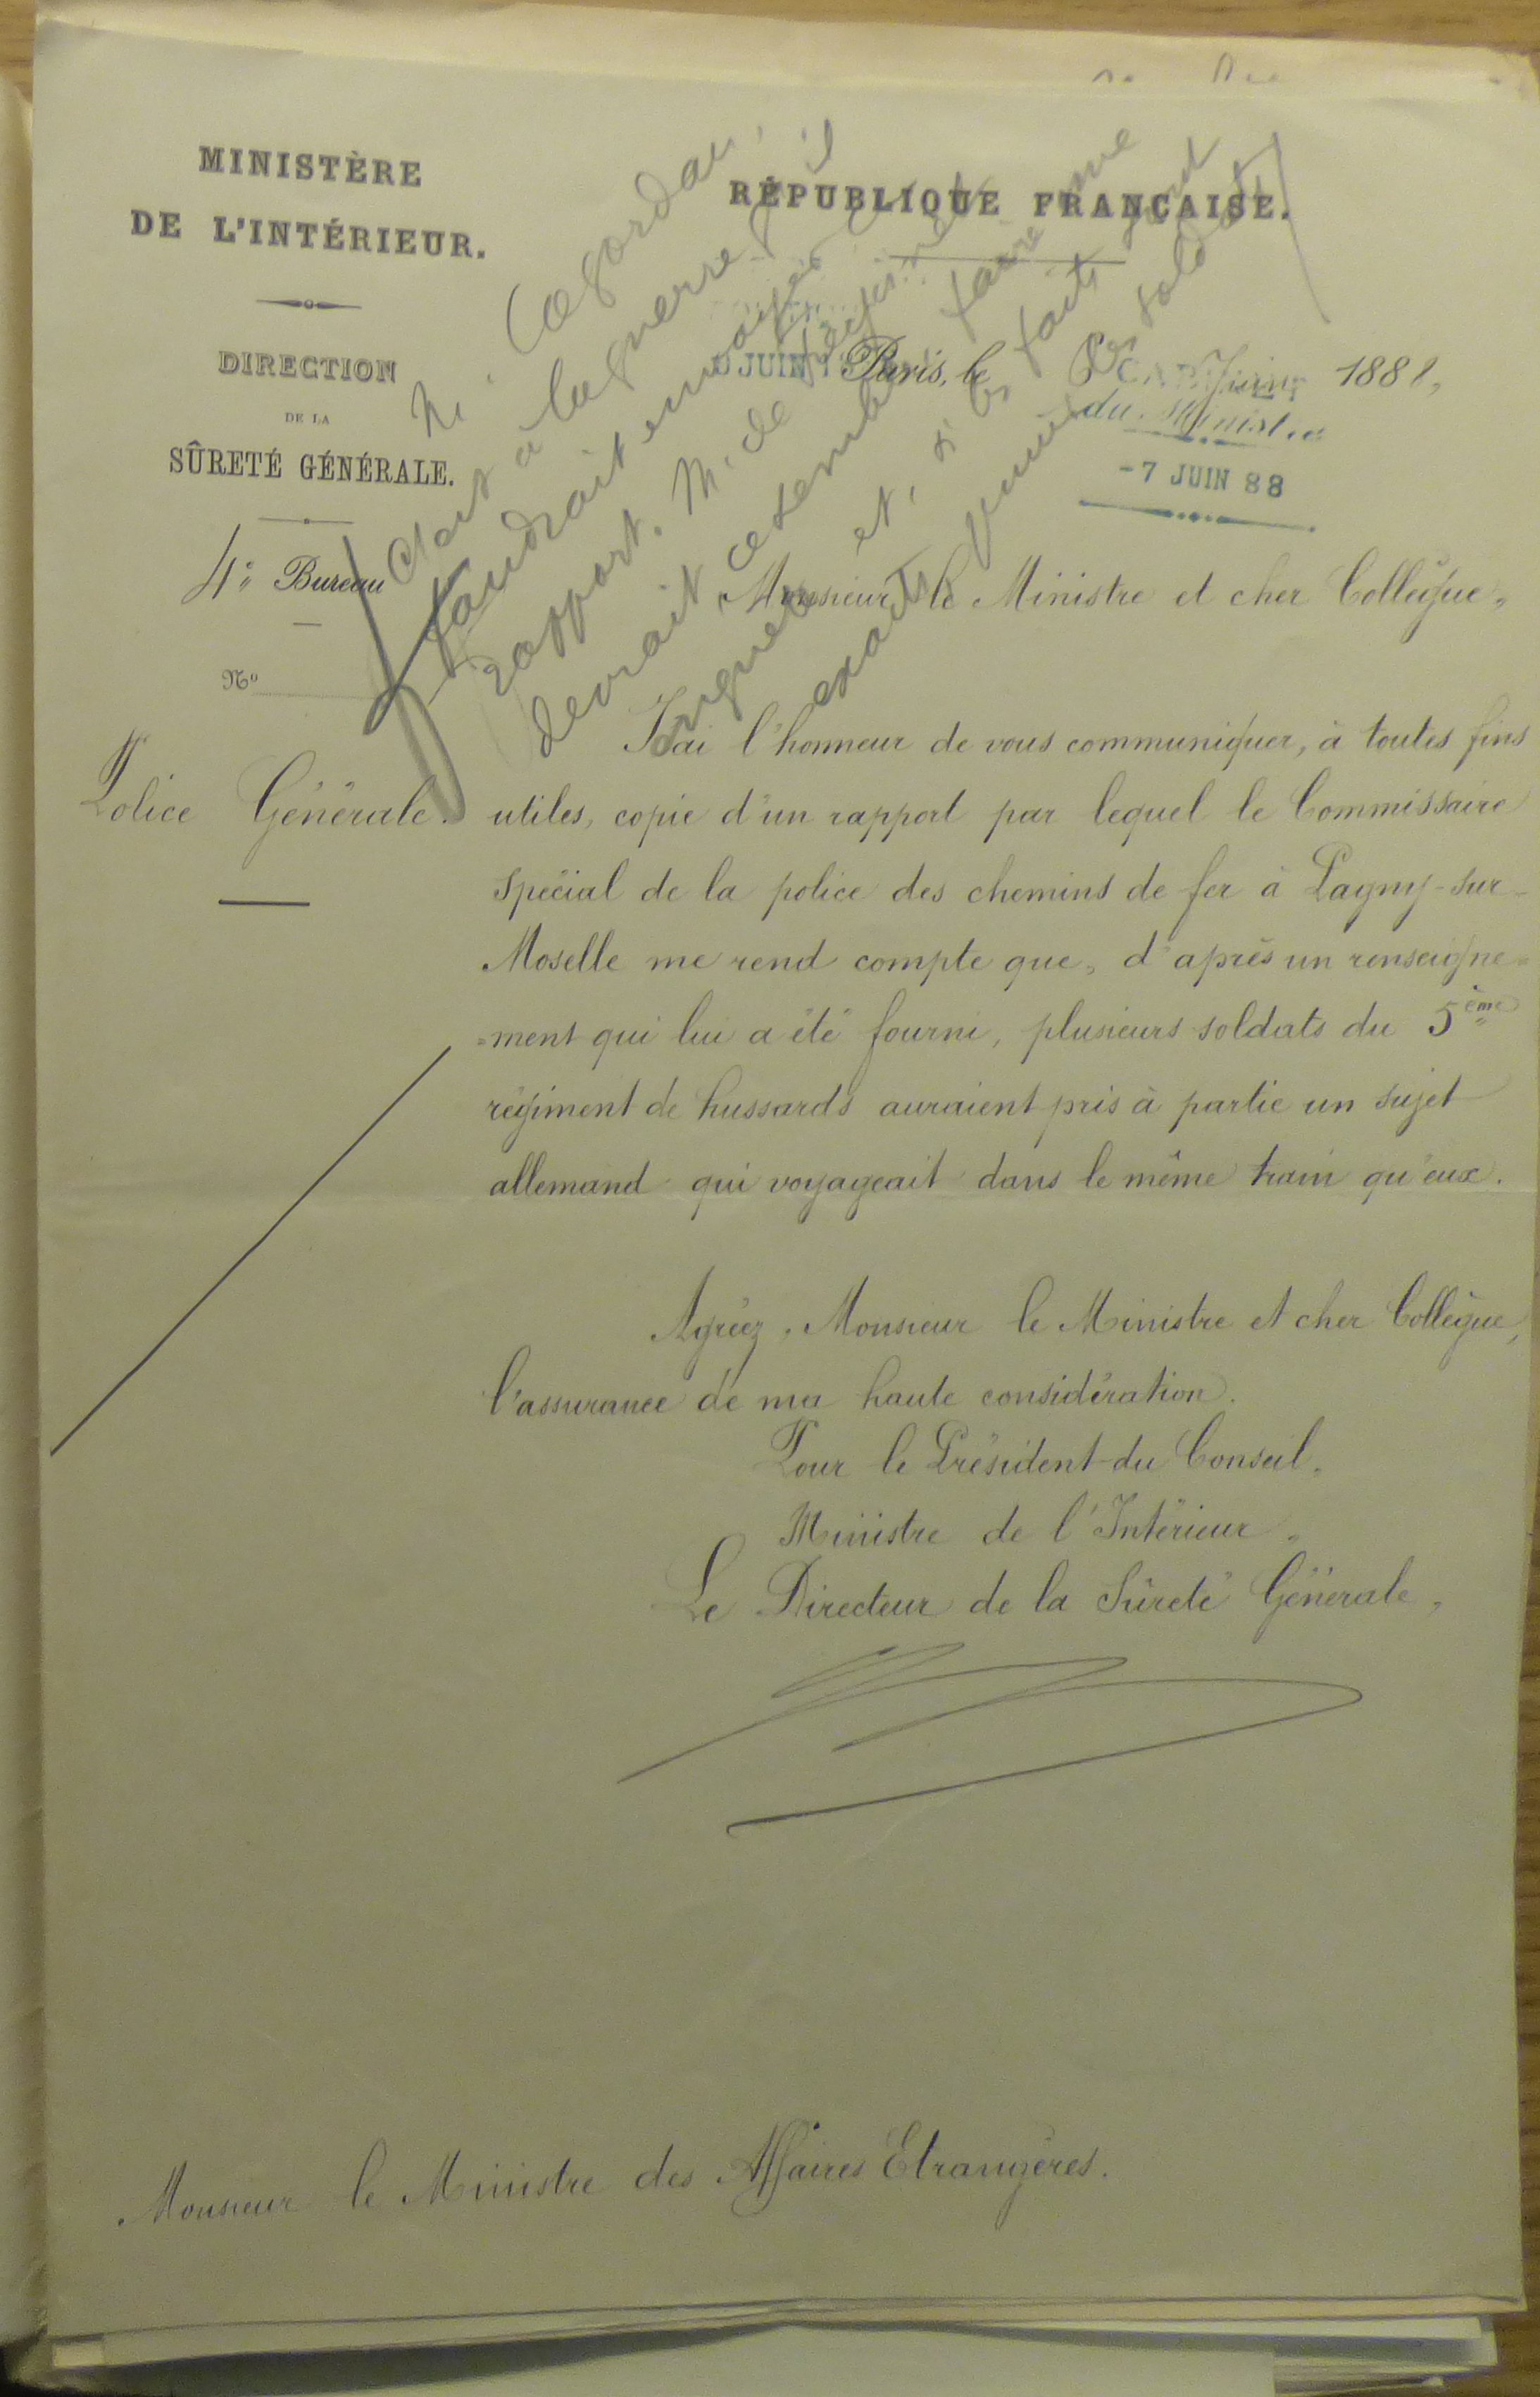 MINISTÈRE
DE L'INTÉRIEUR.
DIRECTION
DE LA
SÛRETÉ GÉNÉRALE.
4e Bureau
No
Police Générale.
RÉPUBLIQUE FRANÇAISE.
Paris, le 6 Juin 1888,
JUIN
CABINET
du Ministre
-7 JUIN 88
M. Cogordan
à la guerre il
faudrait envoyer ce
rapport. M. de
devrait, ce semble, faire une
enquête et, si les faits sont
exacts, punir les soldats
Monsieur le Ministre et cher Collègue,
J'ai l'honneur de vous communiquer, à toutes fins
utiles, copie d'un rapport par lequel le Commissaire
spécial de la police des chemins de fer à Pagny-sur-
Moselle me rend compte que, d'après un renseigne=
=ment qui lui a été fourni, plusieurs soldats du 5ème
régiment de hussards auraient pris à partie un sujet
allemand qui voyageait dans le même train qu'eux.
Agréez, Monsieur le Ministre et cher Collègue,
l'assurance de ma haute considération.
Pour le Président du Conseil,
Ministre de l'Intérieur,
Le Directeur de la Sûreté Générale,
Monsieur le Ministre des Affaires Etrangères.